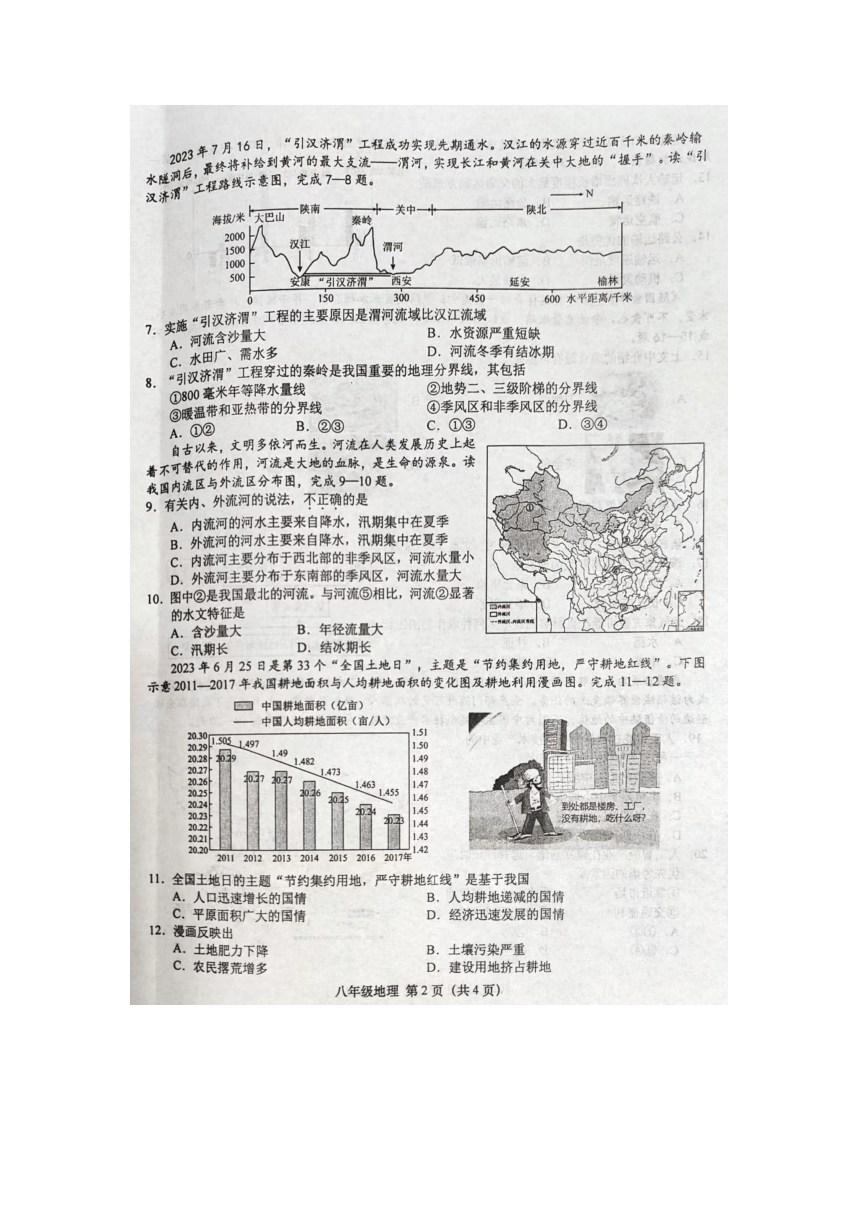 2023年7月16日，“引汉济渭”工程成功实现先期通水。汉江的水源穿过近百千米的秦岭输
水隧洞后，最终将补给到黄河的最大支流——渭河，实现长江和黄河在关中大地的“握手”。读“引
汉济渭”工程路线示意图，完成7—8题。
N
海拔/米 大巴山 陕南 秦岭 关中 陕北
2000
1500
1000
500
汉江 渭河
安康 “引汉济渭” 西安 延安 榆林
0 150 300 450 600 水平距离/千米
7．实施“引汉济渭”工程的主要原因是渭河流域比汉江流域
A．河流含沙量大 B．水资源严重短缺
C．水田广、需水多 D．河流冬季有结冰期
8．“引汉济渭”工程穿过的秦岭是我国重要的地理分界线，其包括
①800毫米年等降水量线 ②地势二、三级阶梯的分界线
③暖温带和亚热带的分界线 ④季风区和非季风区的分界线
A．①② B．②③ C．①③ D．③④
自古以来，文明多依河而生。河流在人类发展历史上起
着不可替代的作用，河流是大地的血脉，是生命的源泉。读
我国内流区与外流区分布图，完成9—10题。
9．有关内、外流河的说法，不正确的是
A．内流河的河水主要来自降水，汛期集中在夏季
B．外流河的河水主要来自降水，汛期集中在夏季
C．内流河主要分布于西北部的非季风区，河流水量小
D．外流河主要分布于东南部的季风区，河流水量大
内流区
外流区
10．图中②是我国最北的河流。与河流⑤相比，河流②显著
的水文特征是
A．含沙量大 B．年径流量大
C．汛期长 D．结冰期长
2023年6月25日是第33个“全国土地日”，主题是“节约集约用地，严守耕地红线”。下图
示意2011—2017年我国耕地面积与人均耕地面积的变化图及耕地利用漫画图。完成11—12题。
中国耕地面积（亿亩）
中国人均耕地面积（亩/人）
20.30 1.51
20.29 1.505 1.497 1.50
20.28 20.29 1.49 1.49
20.27 1.482 1.48
20.26 20.27 20.27 1.473 1.47
20.25 20.26 20.25 1.463 1.455 1.46
20.24 20.24 1.45
20.23 20.23 1.44
20.22
20.21 1.43
20.20 1.42
2011 2012 2013 2014 2015 2016 2017年
到处都是楼房、工厂，
没有耕地，吃什么呀？
11．全国土地日的主题“节约集约用地，严守耕地红线”是基于我国
A．人口迅速增长的国情 B．人均耕地递减的国情
C．平原面积广大的国情 D．经济迅速发展的国情
12．漫画反映出
A．土地肥力下降 B．土壤污染严重
C．农民撂荒增多 D．建设用地挤占耕地
八年级地理 第2页（共4页）